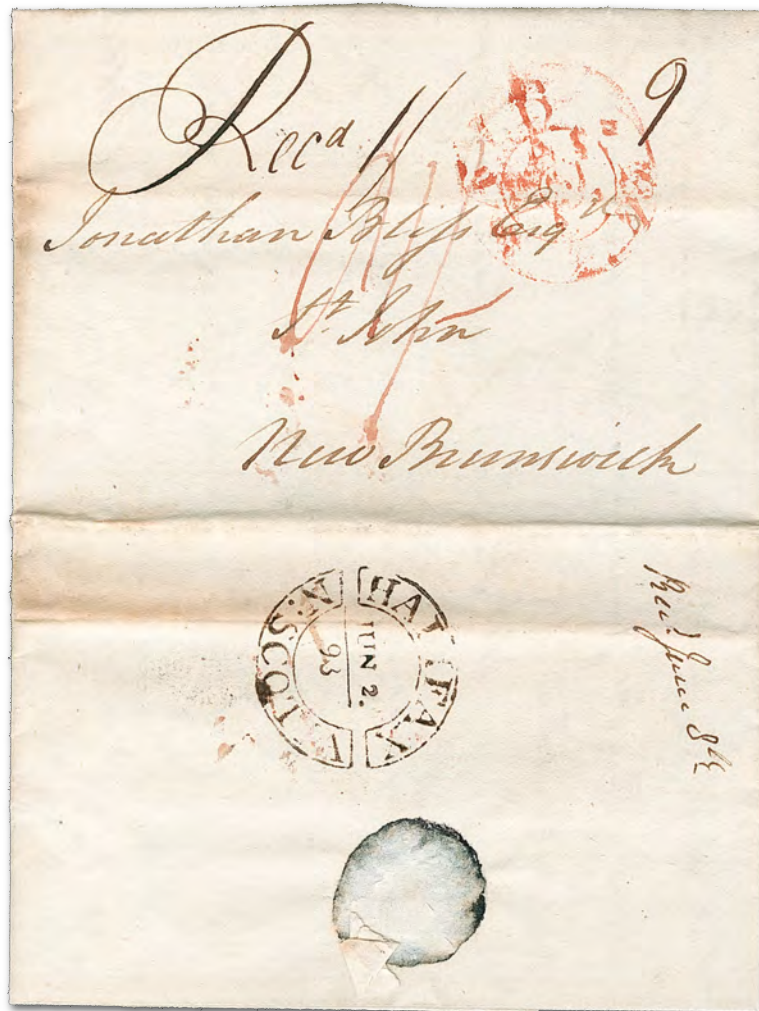 Rec'd 1/ 9
Jonathan Bliss Esqr
St John
New Brunswick
HALIFAX
N. SCOTIA
JUN 2.
93
Rec'd June 8th